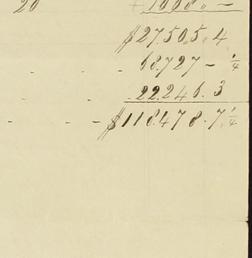 20 1008. –
$27505.4
68.727 – ¼
22.246.3
- - - - $118.478.7¼